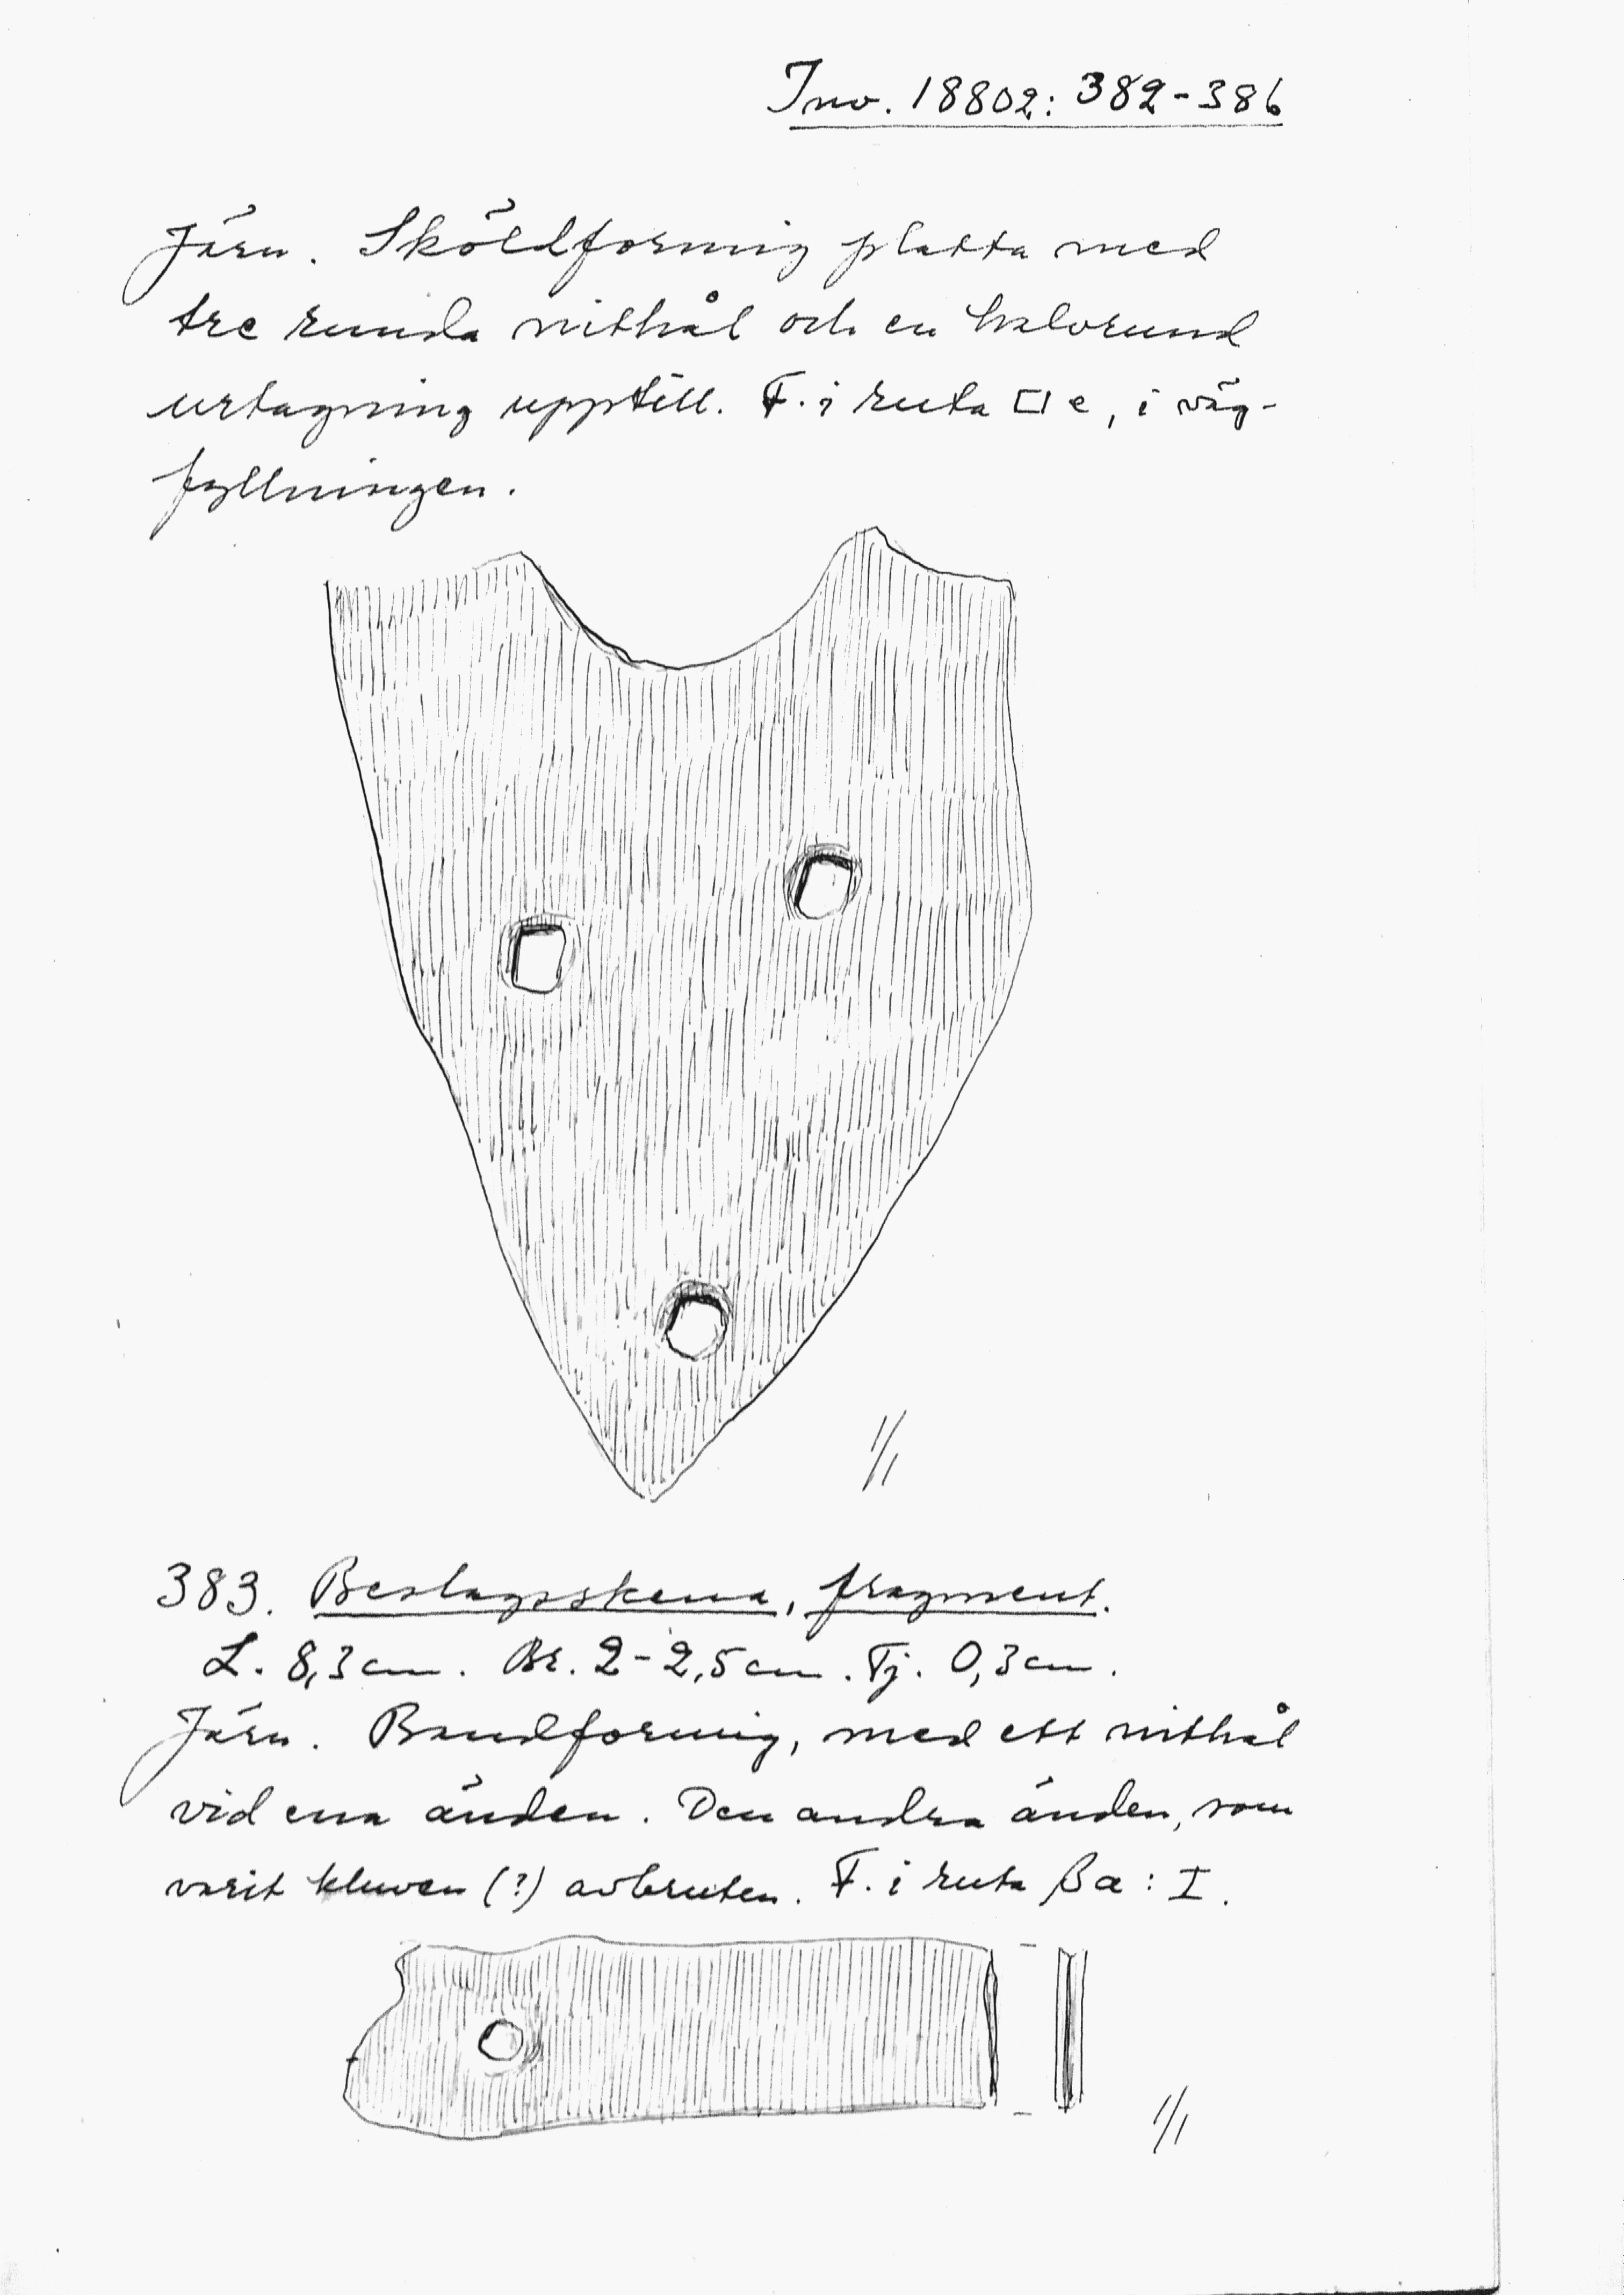 Inv. 18802: 382-386
Järn. Sköldformig platta med
tre runda nithål och en halvrund
urtagning upptill. F. i ruta □ e, i väg-
fyllningen.
1/1
383. Beslagsskena, fragment.
L. 8,3 cm. Br. 2-2,5 cm. Tj. 0,3 cm.
Järn. Bandformig, med ett nithål
vid ena änden. Den andra änden, som
varit kluven (?) avbruten. F. i ruta βa: I.
1/1